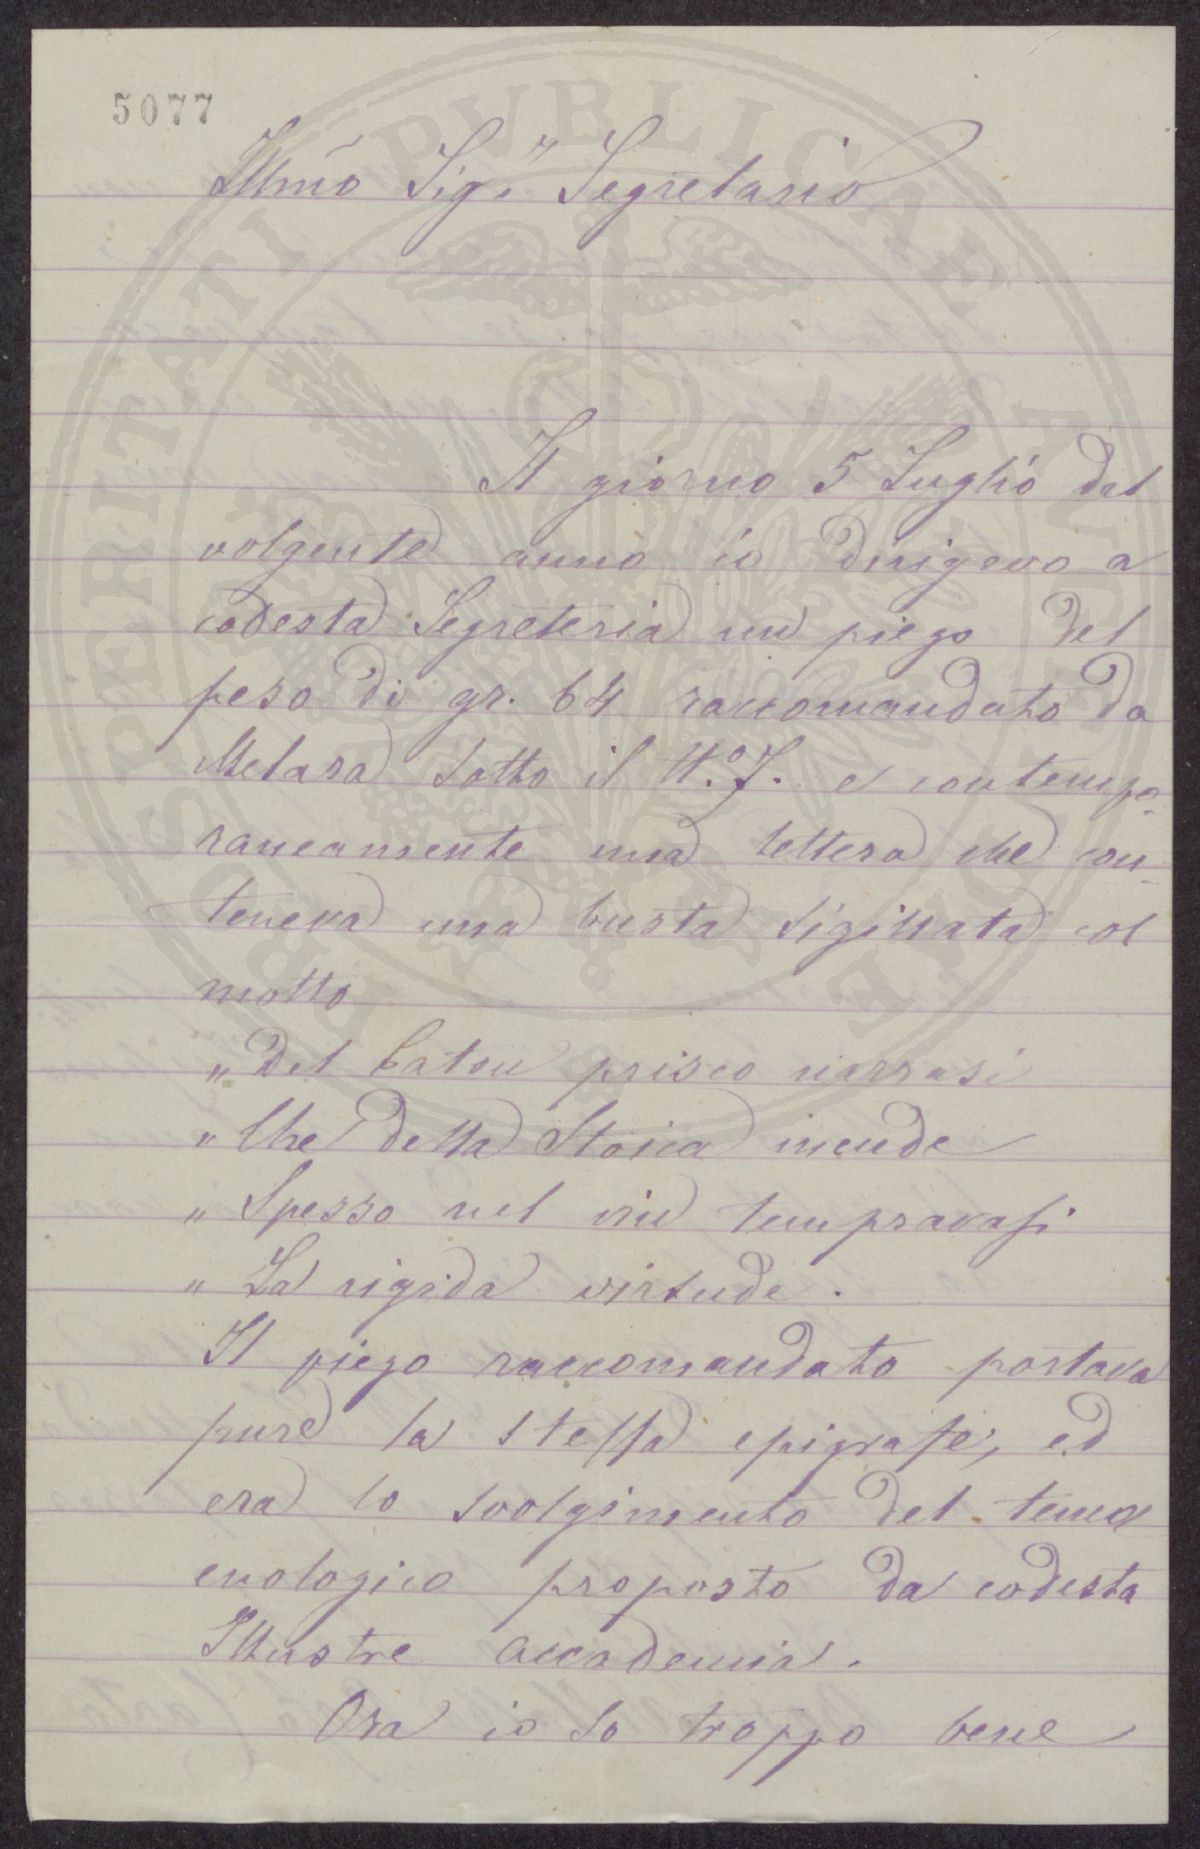 5077
Illm̃o Sig.r Segretario
Il giorno 5 Luglio del
volgente anno io dirigevo a
codesta Segreteria un piego del
peso di gr. 64 raccomandato da
Melara sotto il N.º 7. e contempo-
raneamente una lettera che con-
teneva una busta sigillata col
motto
„ Del Caton prisco narrasi
„ Che della Stoica incude
„ Spesso nel vin tempravasi
„ La rigida virtude.
Il piego raccomandato portava
pure la stessa epigrafe, ed
era lo svolgimento del tema
enologico proposto da codesta
Illustre accademia.
Ora io so troppo bene
PROSPERITATI PVBLICAE AVGENDAE